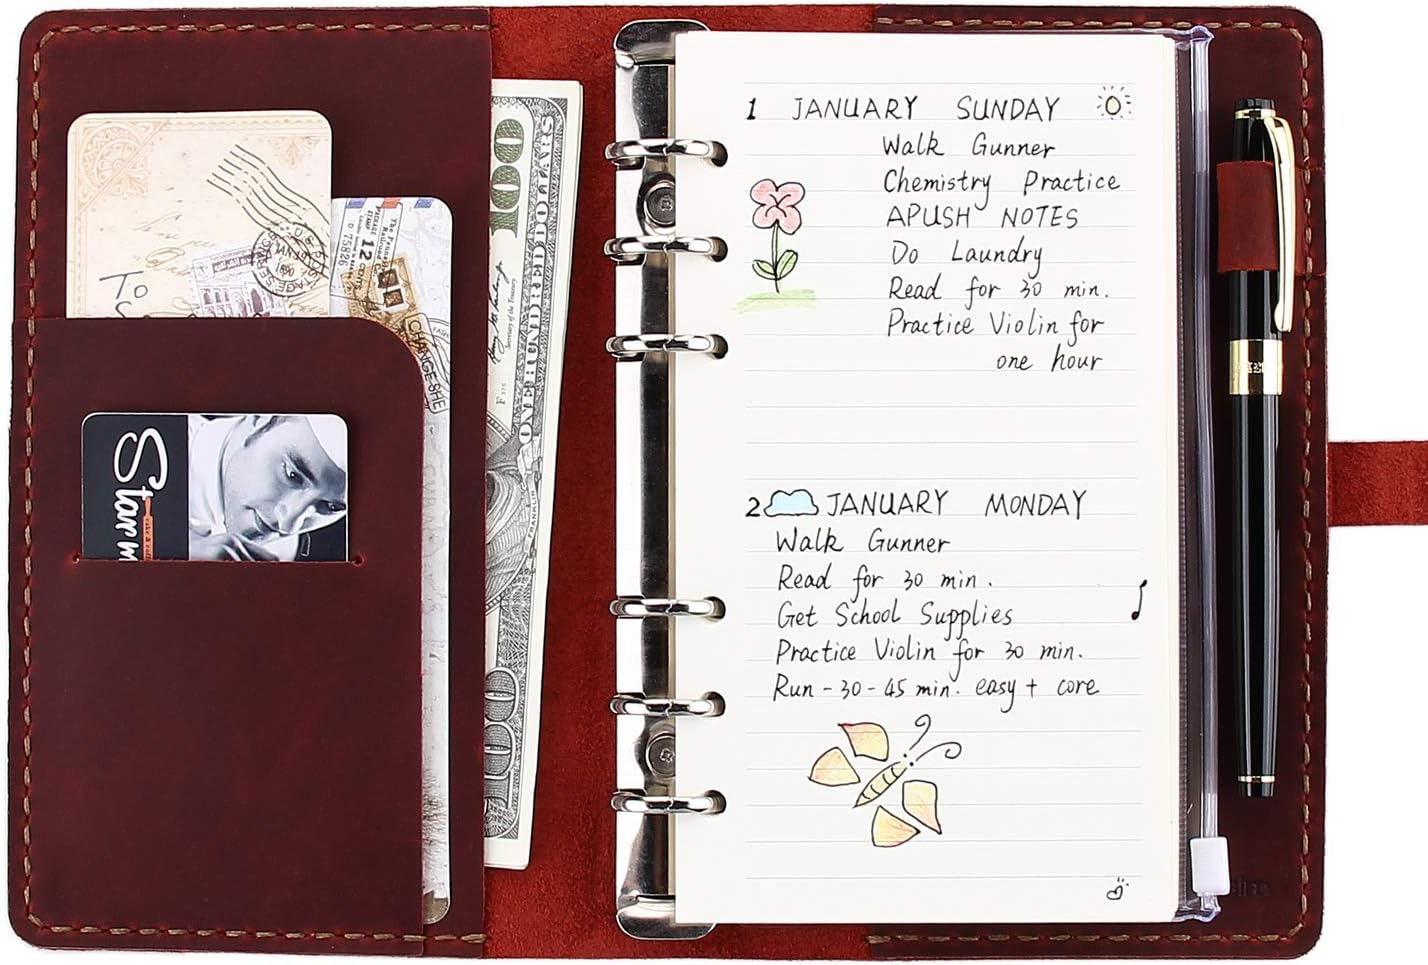 To
U.S.
12
CENTS
D 75826
CHANGE SHE
Star
100
ONE HUNDRED DOLLARS
Secretary of the Treasury
FRANKLIN
100
1 JANUARY SUNDAY
Walk Gunner
Chemistry Practice
APUSH NOTES
Do Laundry
Read for 30 min.
Practice Violin for
one hour
2 JANUARY MONDAY
Walk Gunner
Read for 30 min.
Get School Supplies
Practice Violin for 30 min.
Run - 30 - 45 min. easy + core